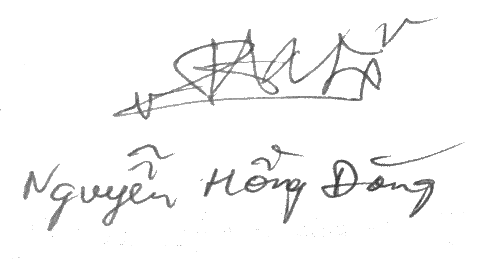 Nguyễn Hồng Đăng